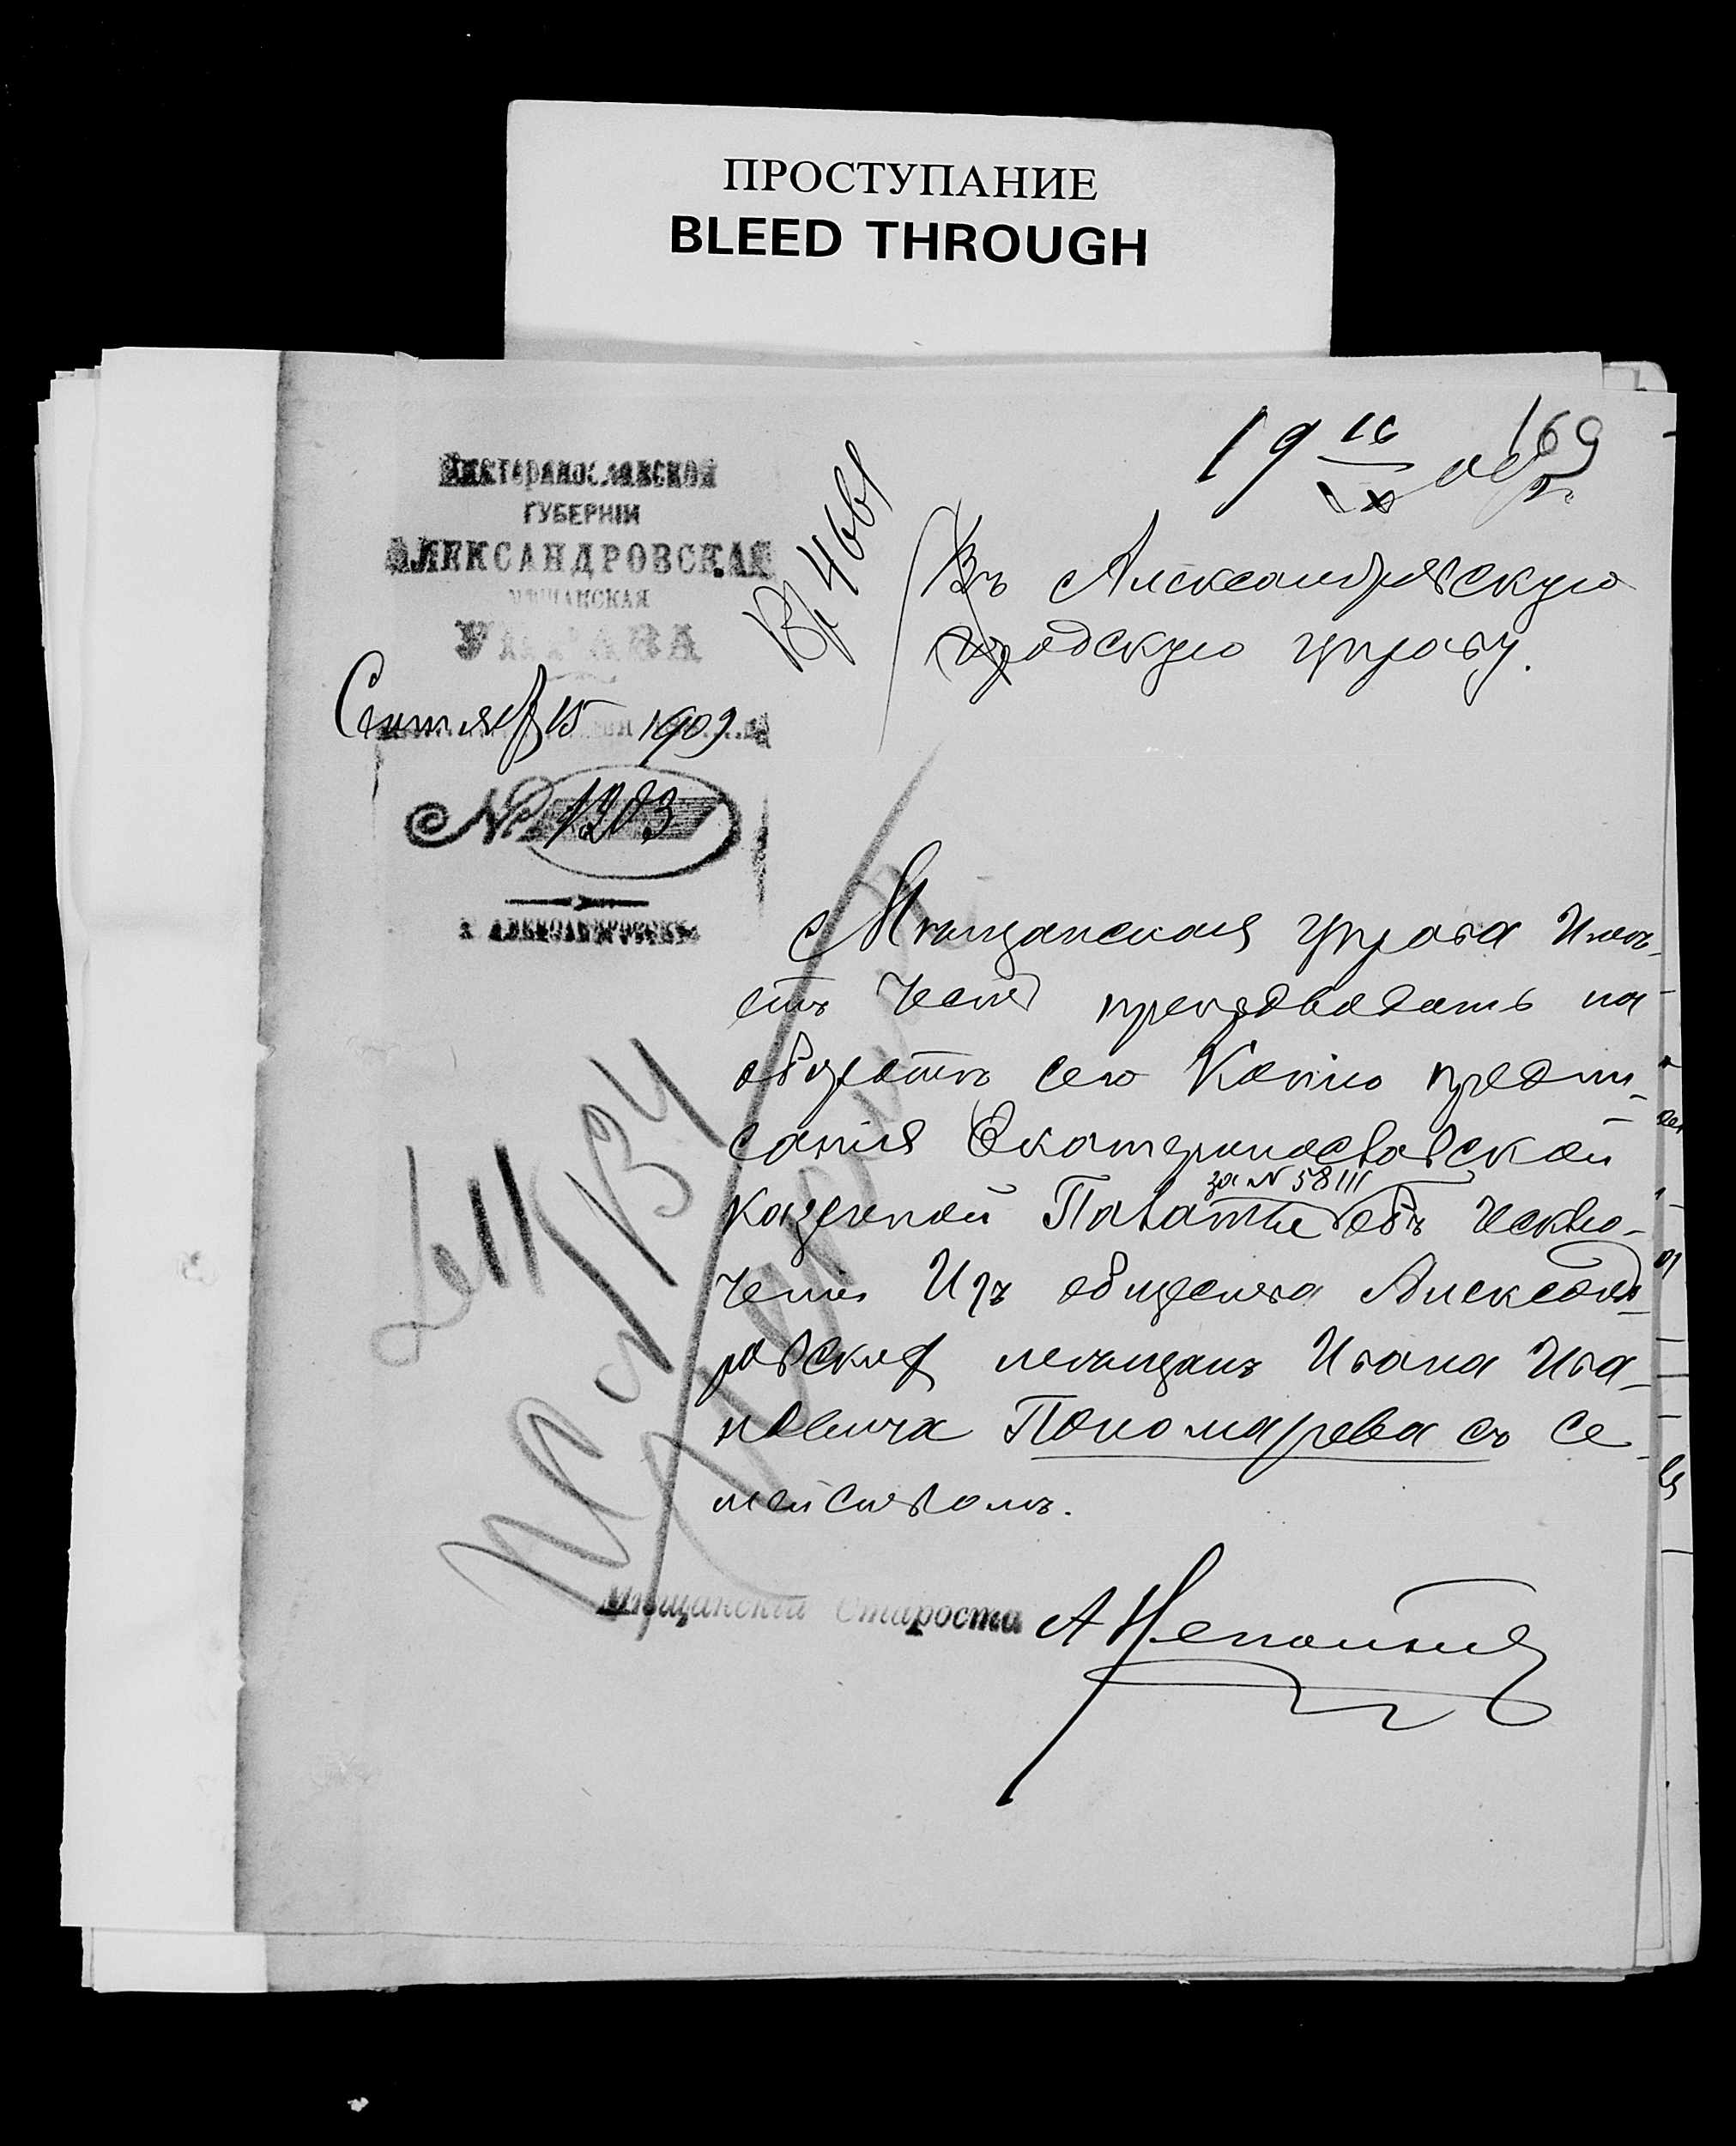 ПРОСТУПАНИЕ
BLEED THROUGH
169
19 16/IX 09 г.
Екатеринославской
ГУБЕРНІИ
АЛЕКСАНДРОВСКАЯ
МѢЩАНСКАЯ
УПРАВА
Сентября 15 1909
№ 1203
г. АЛЕКСАНДРОВСКЪ
Вх 4661
Въ Александровскую
городскую управу.
Мѣщанская управа имѣ-
етъ честь препроводить на
оборотѣ сего копію предпи-
санія Екатеринославской
за № 58111
казенной Палаты объ исклю-
ченіи Изъ общества Александ-
ровскихъ мещанъ Ивана Ива-
новича Пономарева съ се-
мействомъ.
Мѣщанскій Староста